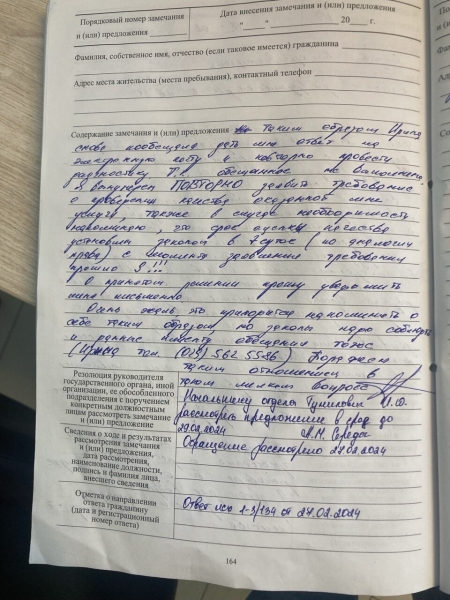 Порядковый номер замечания
и (или) предложения
Дата внесения замечания и (или) предложения
"      "      20      г.
Фамилия, собственное имя, отчество (если таковое имеется) гражданина
Адрес места жительства (места пребывания), контактный телефон
Содержание замечания и (или) предложения Таким образом Ирина
снова пообещала дать мне ответ на
электронную почту и повторно провести
Т.к. обещанное не выполнено
Я вынужден ПОВТОРНО заявить требование
о проверении качества оказанной мне
услуги, также в случае необходимости
напоминаю, что срок оценки качества
установлен законом в 7 суток (по аналогии
права) с момента заявления требования
прошло 9!!!
О принятом решении прошу уведомить
меня письменно
Очень жаль, что приходится напоминать о
себе таким образом, но законы надо соблюдать
и данные клиенту обещания тоже
(Ирина тел. (029) 562 5556)
таким отношением в
таком мелком вопросе
Резолюция руководителя
государственного органа, иной
организации, ее обособленного
подразделения с поручением
конкретным должностным
лицам рассмотреть замечание
и (или) предложение
Начальнику отдела
рассмотреть предложение в срок до
29.02.2024
Сведения о ходе и результатах
рассмотрения замечания
и (или) предложения,
дата рассмотрения,
наименование должности,
подпись и фамилия лица,
внесшего сведения
Обращение рассмотрено 27.02.2024
Отметка о направлении
ответа гражданину
(дата и регистрационный
номер ответа)
Ответ исх 1-3/134 от 27.02.2024
164